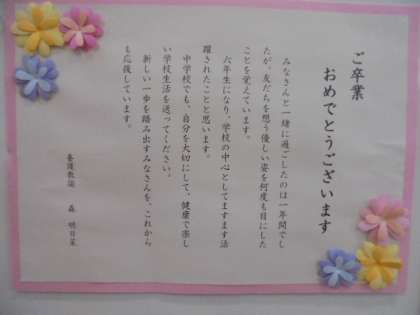 ご卒業
おめでとうございます
みなさんと一緒に過ごしたのは一年間でし
たが、友だちを想う優しい姿を何度も目にした
ことを覚えています。
六年生になり、学校の中心としてますます活
躍されたことと思います。
中学校でも、自分を大切にして、健康で楽し
い学校生活を送ってください。
新しい一歩を踏み出すみなさんを、これから
も応援しています。
養護教諭 森 明日菜